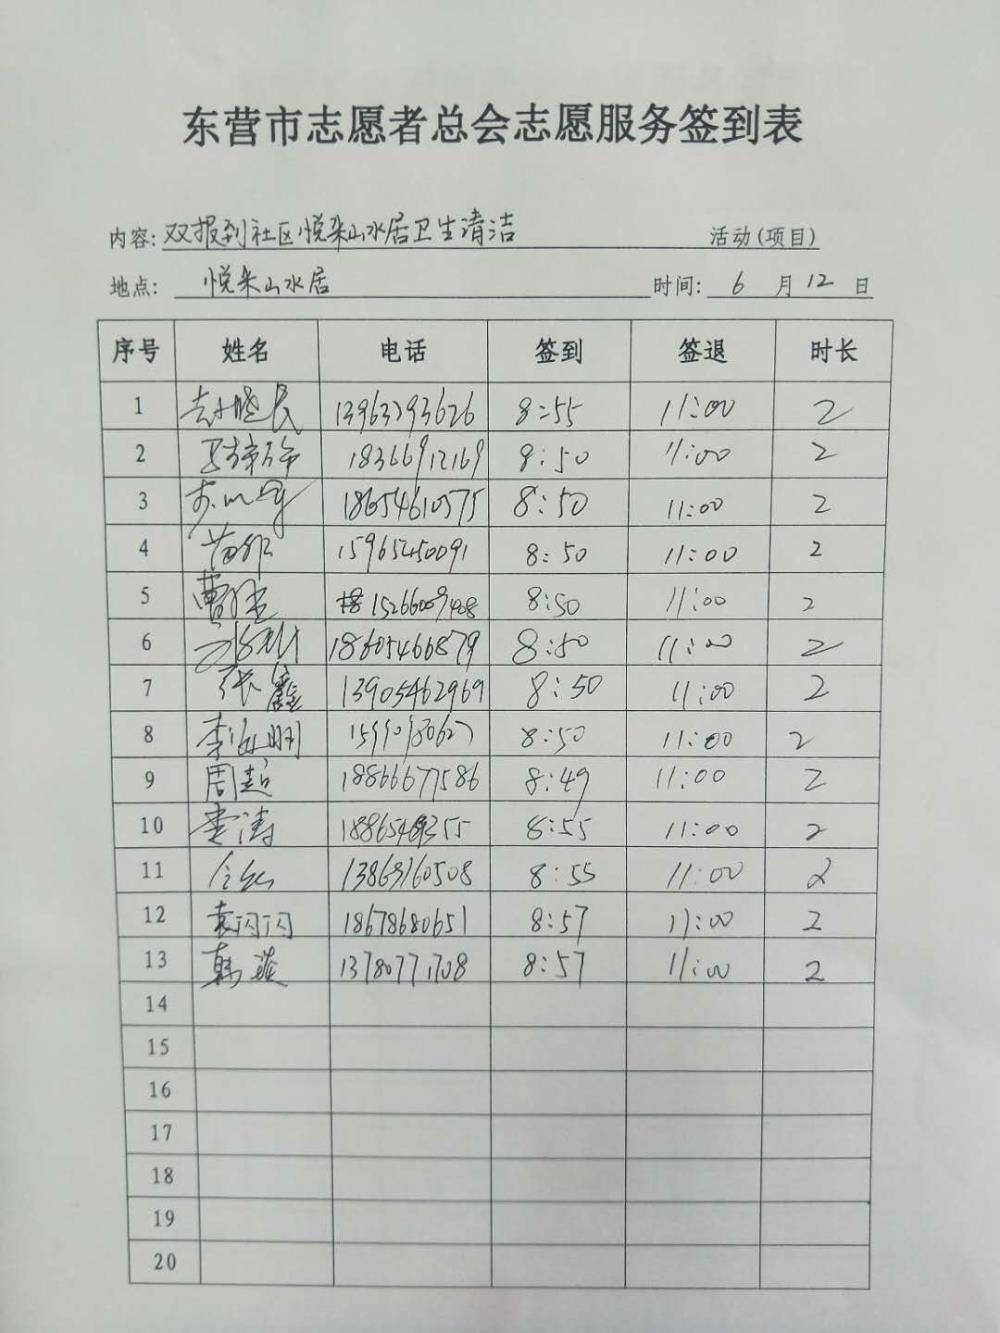 东营市志愿者总会志愿服务签到表
内容: 双报到社区悦来山水居卫生清洁 活动(项目)
地点: 悦来山水居 时间: 6 月 12 日
序号 姓名 电话 签到 签退 时长
1 13963793626 8:55 11:00 2
2 18366912169 8:50 11:00 2
3 18654610575 8:50 11:00 2
4 苗郁 15965450091 8:50 11:00 2
5 8:50 11:00 2
6 18605466879 8:50 11:00 2
7 张鑫 13905462969 8:50 11:00 2
8 李海明 8:50 11:00 2
9 周超 18866677586 8:49 11:00 2
10 8:55 11:00 2
11 13869160508 8:55 11:00 2
12 袁闪闪 18678680651 8:57 11:00 2
13 13780771708 8:57 11:00 2
14
15
16
17
18
19
20